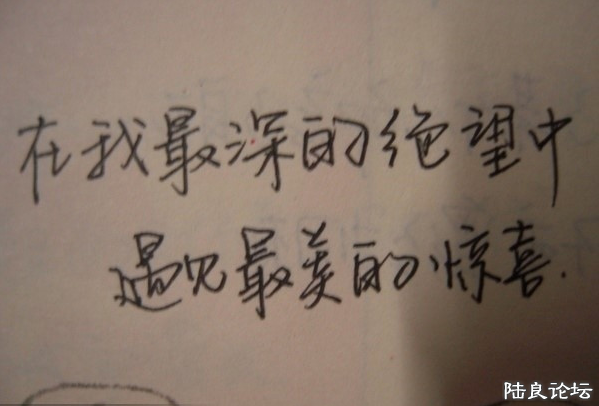 在我最深的绝望中
遇见最美的惊喜.
陆良论坛